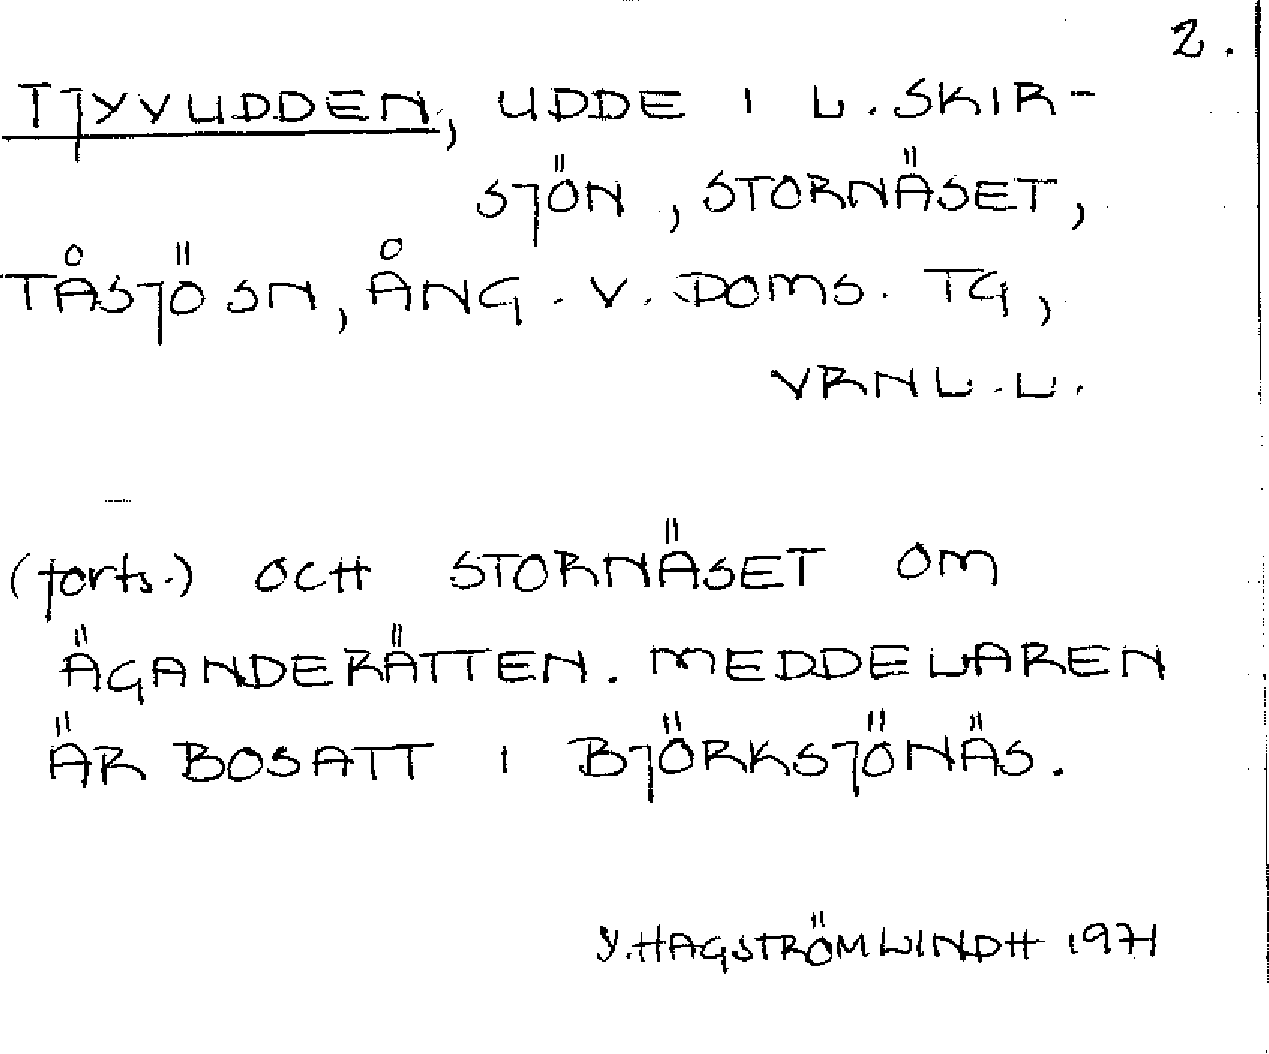 2.
TJYVUDDEN, UDDE I L. SKIR-
SJÖN, STORNÄSET,
TÅSJÖ SN, ÅNG. V. DOMS. TG,
VRNL. L.
(forts.) OCH STORNÄSET OM
ÄGANDERÄTTEN. MEDDELAREN
ÄR BOSATT I BJÖRKSJÖNÄS.
Y. HAGSTRÖM LINDH 1971